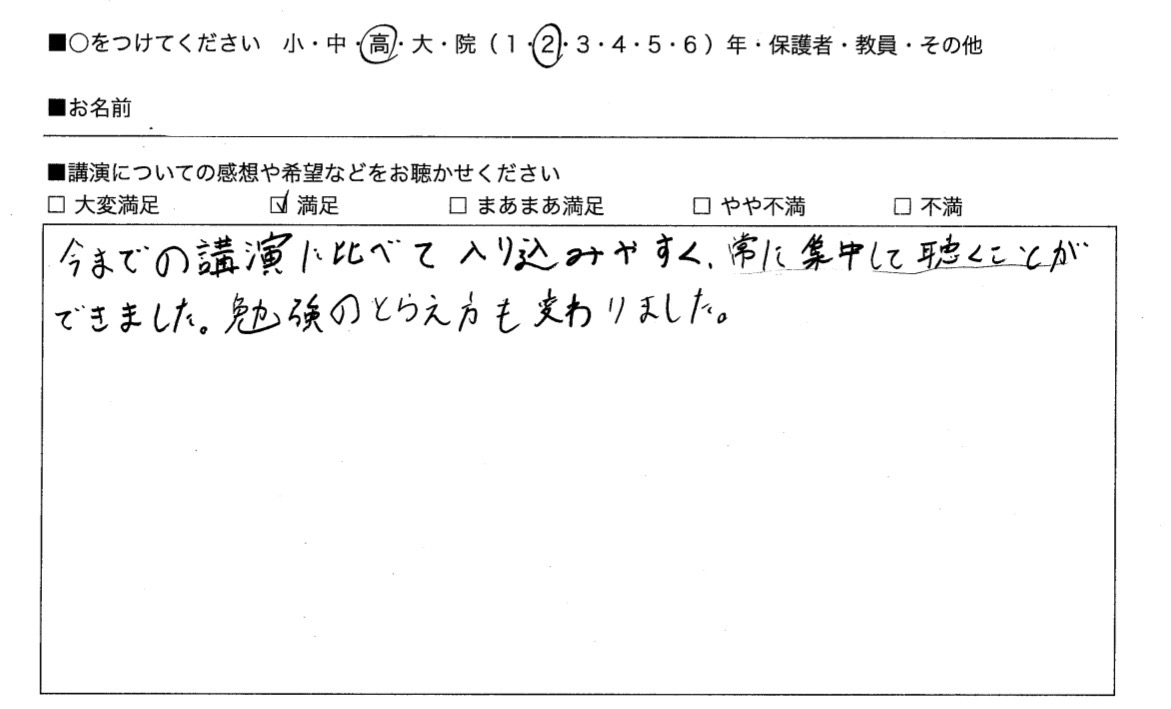 ■○をつけてください 小・中・高・大・院（1・2・3・4・5・6）年・保護者・教員・その他
■お名前
■講演についての感想や希望などをお聴かせください
□ 大変満足 ☑ 満足 □ まあまあ満足 □ やや不満 □ 不満
今までの講演に比べて入り込みやすく、常に集中して聴くことが
できました。勉強のとらえ方も変わりました。